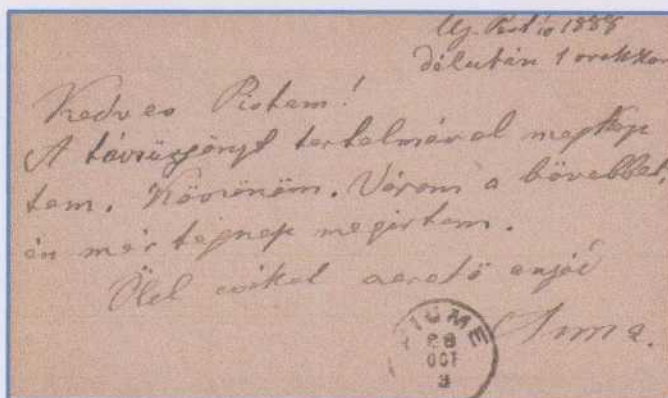 Uj. Pest 1888
délután 1 orakkor
Kedves Pistam!
A távsürgönyt tartalmával megkap
tam. Köszönöm. Várom a bövebbet,
én már tegnap megirtam.
Ölel csókol szerető anyád
Anna.
FIUME
88
OCT
3